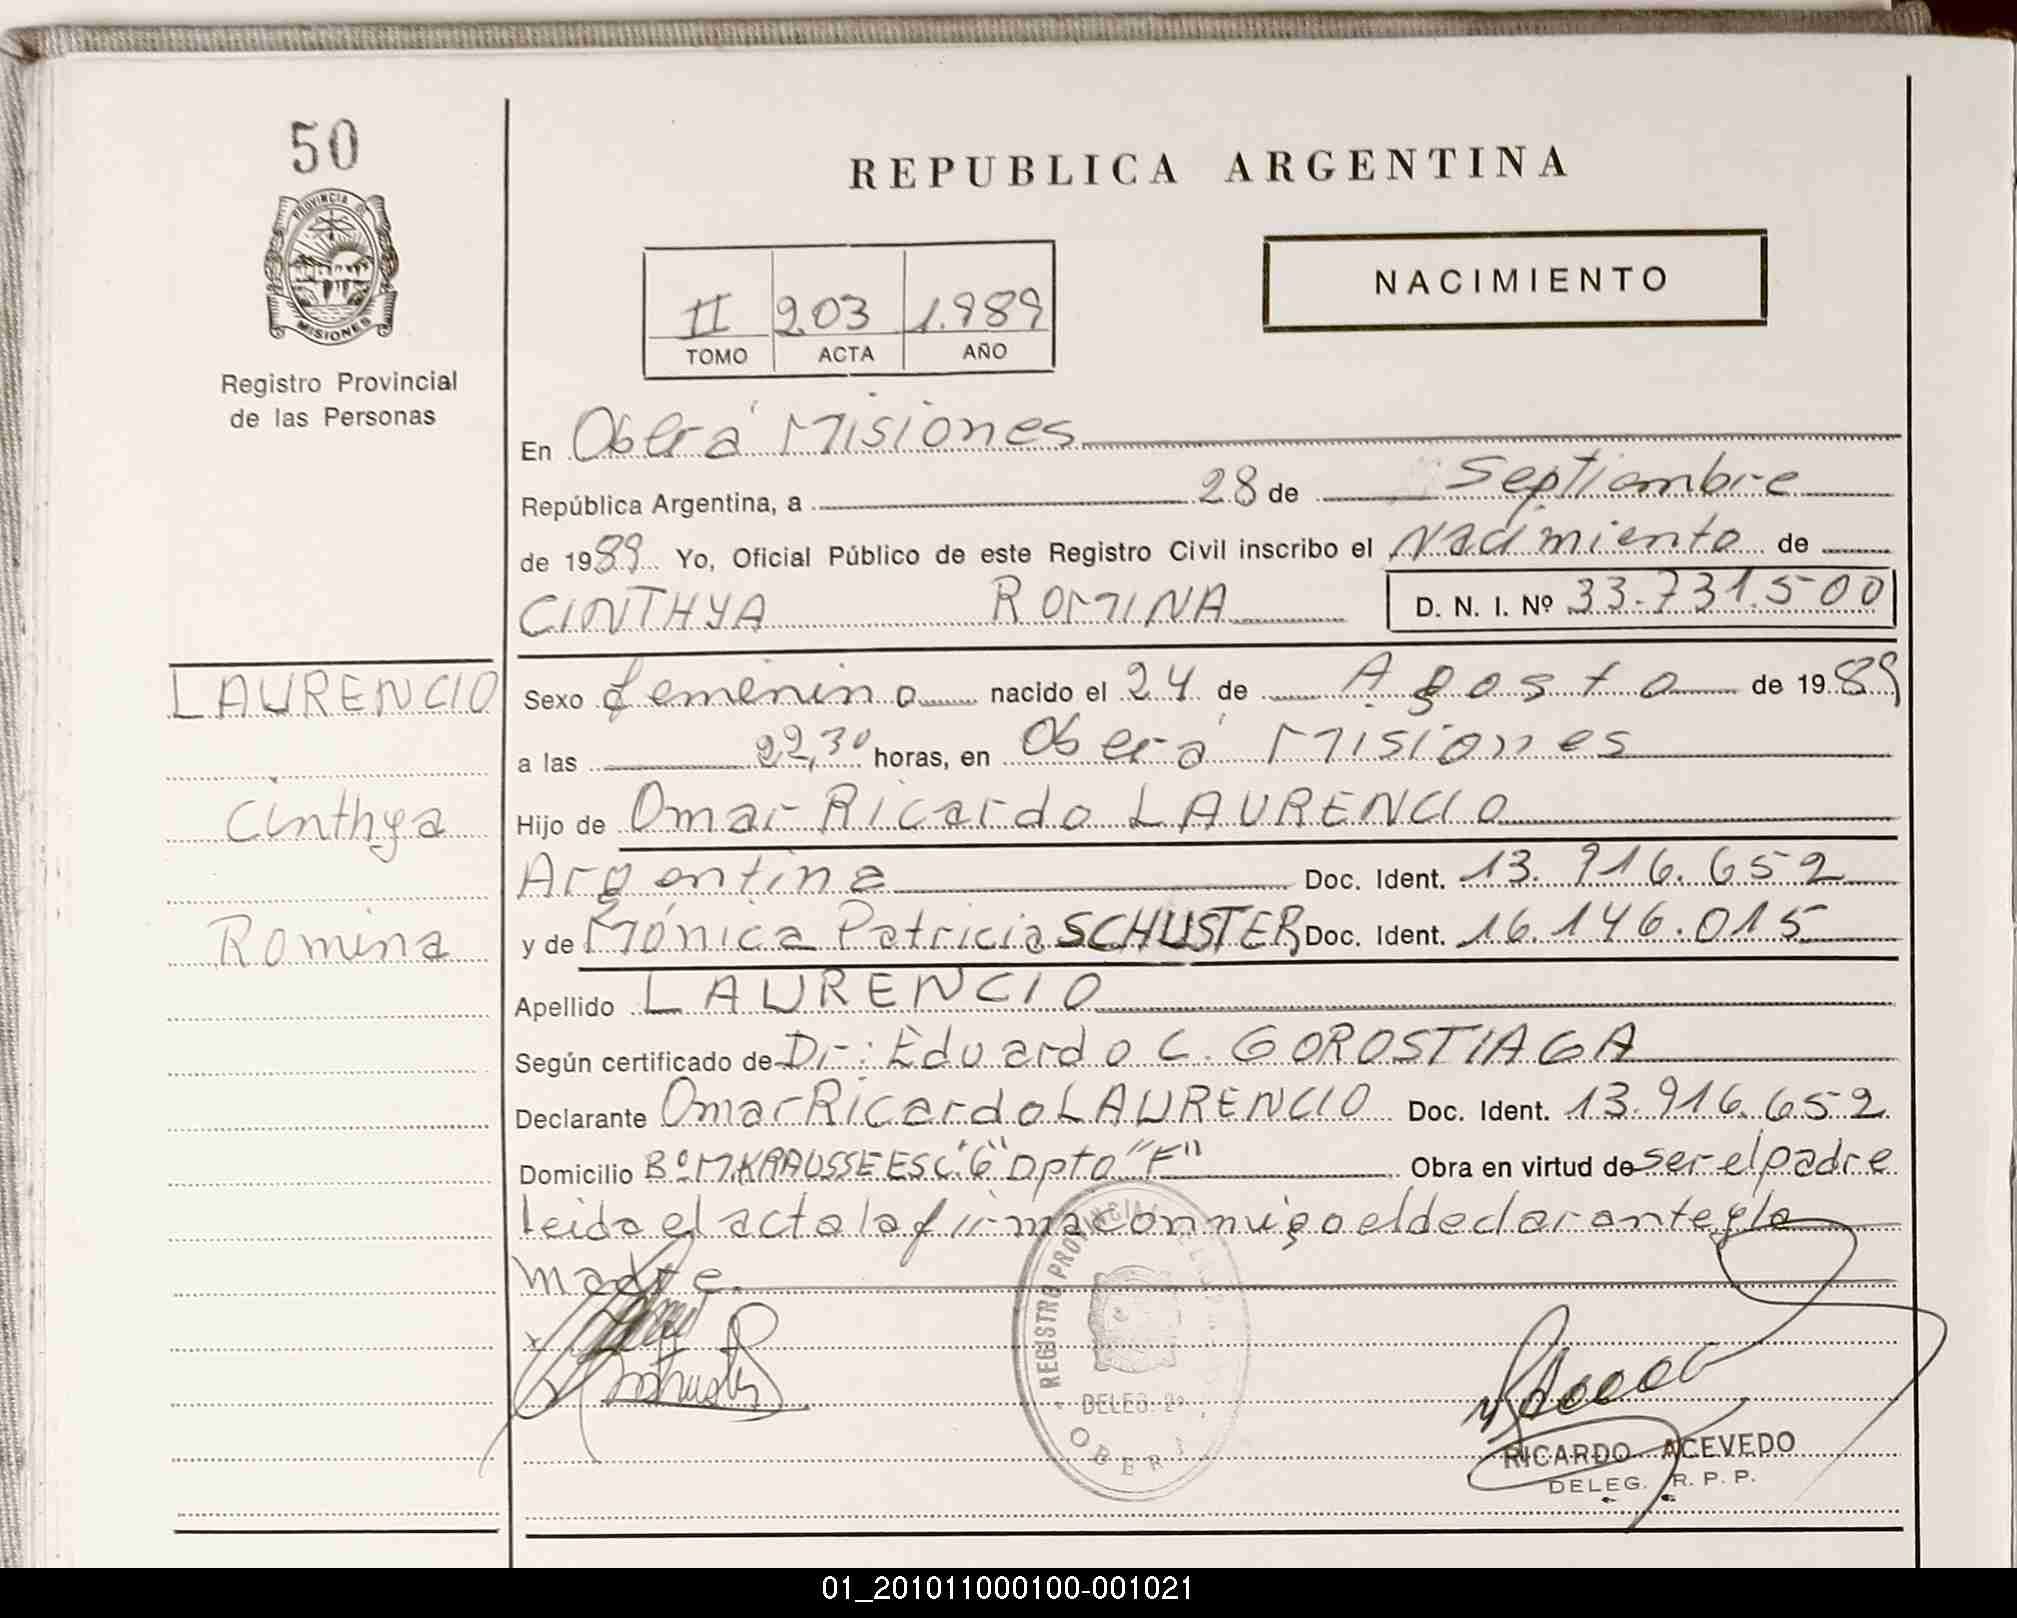 50
PROVINCIA D
MISIONES
Registro Provincial
de las Personas
REPUBLICA ARGENTINA
NACIMIENTO
II 203 1.989
TOMO ACTA AÑO
En Oberá Misiones
República Argentina, a 28 de Septiembre
de 1989 Yo, Oficial Público de este Registro Civil inscribo el Nacimiento de
CINTHYA ROMINA D. N. I. Nº 33.731.500
LAURENCIO
Cinthya
Romina
Sexo femenino nacido el 24 de Agosto de 1989
a las 22,30 horas, en Oberá Misiones
Hijo de Omar Ricardo LAURENCIO
Argentina Doc. Ident. 13.916.652
y de Mónica Patricia SCHUSTER Doc. Ident. 16.146.015
Apellido LAURENCIO
Según certificado de Dr: Eduardo C. GOROSTIAGA
Declarante Omar Ricardo LAURENCIO Doc. Ident. 13.916.652
Domicilio Bº M. KRAUSSE ESC. "6" Dpto "F" Obra en virtud de ser el padre
Leida el acta la firma conmigo el declarante y la
madre.
REGISTRO PROVINCIAL
DELEG. 2ª
OBERÁ
RICARDO ACEVEDO
DELEG. R. P. P.
01_201011000100-001021